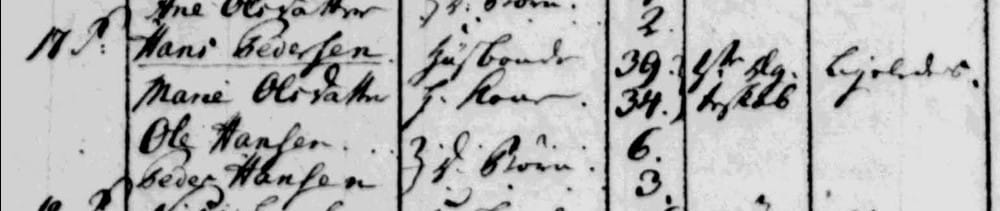 Ane Olsdatter } d. Börn. 2.
17 P: Hans Pedersen Husbonde 39. } 1ste Æg.
Marie Olsdatter h. Kone. 34. }
Ole Hansen } d. Börn. 6.
Peder Hansen 3.